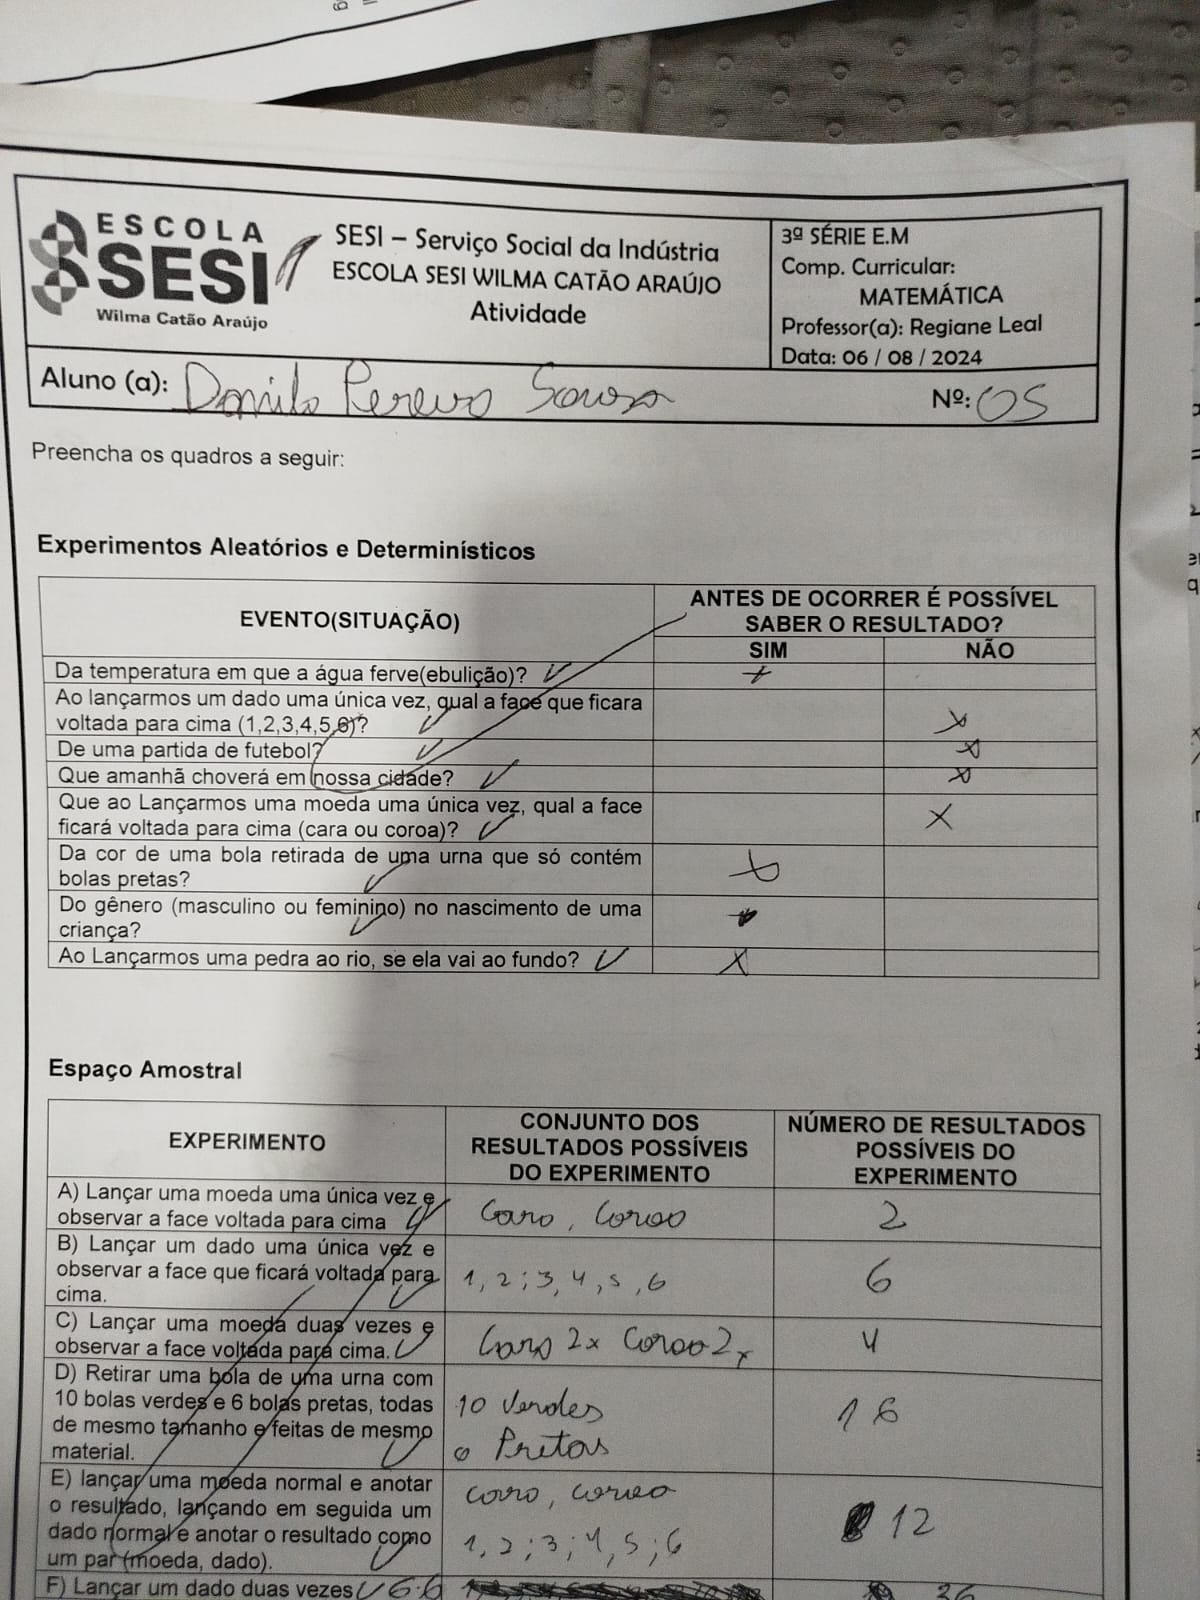 ESCOLA
SESI
Wilma Catão Araújo
SESI – Serviço Social da Indústria
ESCOLA SESI WILMA CATÃO ARAÚJO
Atividade
3ª SÉRIE E.M
Comp. Curricular:
MATEMÁTICA
Professor(a): Regiane Leal
Data: 06 / 08 / 2024
Aluno (a): Danilo Pereira Sousa Nº: 05
Preencha os quadros a seguir:
Experimentos Aleatórios e Determinísticos
EVENTO(SITUAÇÃO)
ANTES DE OCORRER É POSSÍVEL
SABER O RESULTADO?
SIM NÃO
Da temperatura em que a água ferve(ebulição)? x
Ao lançarmos um dado uma única vez, qual a face que ficara
voltada para cima (1,2,3,4,5,6)? x
De uma partida de futebol? x
Que amanhã choverá em nossa cidade? x
Que ao Lançarmos uma moeda uma única vez, qual a face
ficará voltada para cima (cara ou coroa)? X
Da cor de uma bola retirada de uma urna que só contém
bolas pretas? x
Do gênero (masculino ou feminino) no nascimento de uma
criança?
Ao Lançarmos uma pedra ao rio, se ela vai ao fundo? X
Espaço Amostral
EXPERIMENTO
CONJUNTO DOS
RESULTADOS POSSÍVEIS
DO EXPERIMENTO
NÚMERO DE RESULTADOS
POSSÍVEIS DO
EXPERIMENTO
A) Lançar uma moeda uma única vez e
observar a face voltada para cima
Cara, Coroa
2
B) Lançar um dado uma única vez e
observar a face que ficará voltada para
cima.
1, 2; 3, 4, 5, 6
6
C) Lançar uma moeda duas vezes e
observar a face voltada para cima.
Cara 2x Coroa 2x
4
D) Retirar uma bola de uma urna com
10 bolas verdes e 6 bolas pretas, todas
de mesmo tamanho e feitas de mesmo
material.
10 Verdes
6 Pretas
16
E) lançar uma moeda normal e anotar
o resultado, lançando em seguida um
dado normal e anotar o resultado como
um par (moeda, dado).
cara, coroa
1, 2; 3; 4, 5; 6
12
F) Lançar um dado duas vezes 6.6
36